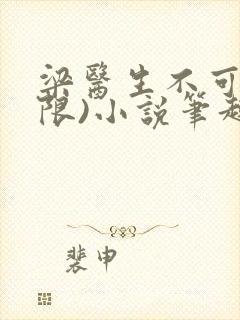 梁醫生不可
限)小說筆趣
裴申